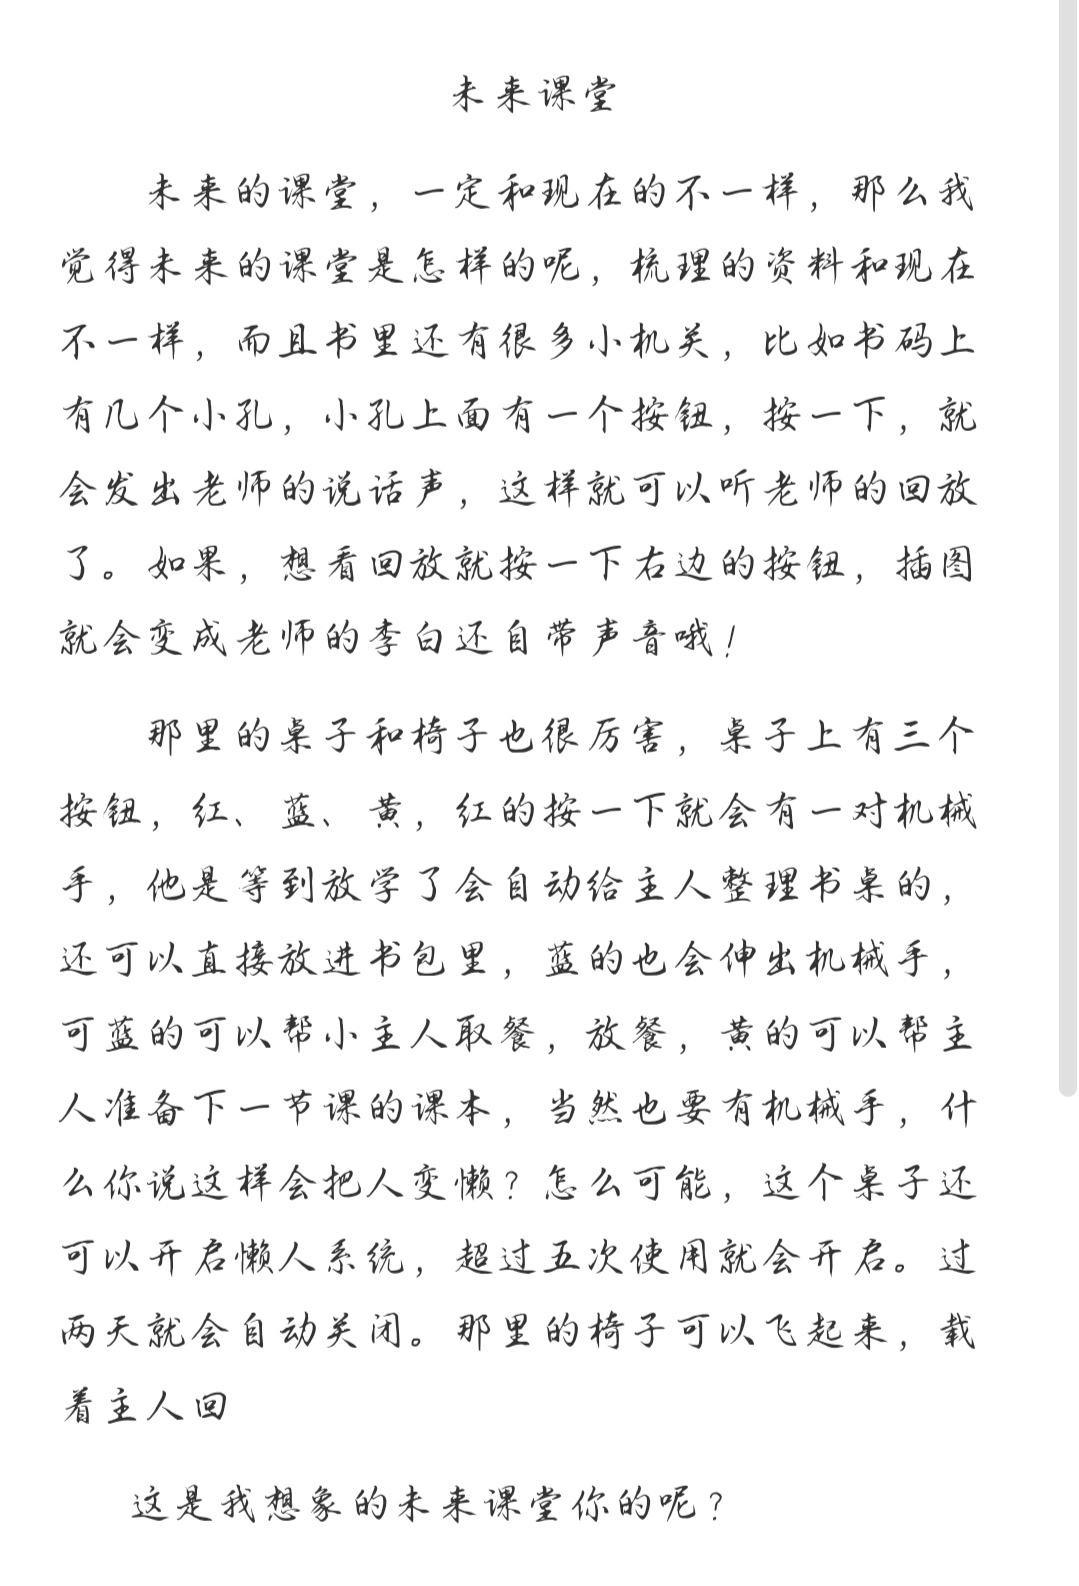 未来课堂
未来的课堂，一定和现在的不一样，那么我
觉得未来的课堂是怎样的呢，梳理的资料和现在
不一样，而且书里还有很多小机关，比如书码上
有几个小孔，小孔上面有一个按钮，按一下，就
会发出老师的说话声，这样就可以听老师的回放
了。如果，想看回放就按一下右边的按钮，插图
就会变成老师的李白还自带声音哦！
那里的桌子和椅子也很厉害，桌子上有三个
按钮，红、蓝、黄，红的按一下就会有一对机械
手，他是等到放学了会自动给主人整理书桌的，
还可以直接放进书包里，蓝的也会伸出机械手，
可蓝的可以帮小主人取餐，放餐，黄的可以帮主
人准备下一节课的课本，当然也要有机械手，什
么你说这样会把人变懒？怎么可能，这个桌子还
可以开启懒人系统，超过五次使用就会开启。过
两天就会自动关闭。那里的椅子可以飞起来，载
着主人回
这是我想象的未来课堂你的呢？